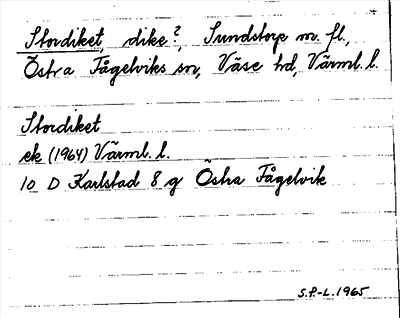 Stordiket, dike?, Sundstorp m. fl.,
Östra Fågelviks sn, Väse hd, Värml. l.
Stordiket
ek (1964) Värml. l.
10 D Karlstad 8 g Östra Fågelvik
S.P-L. 1965